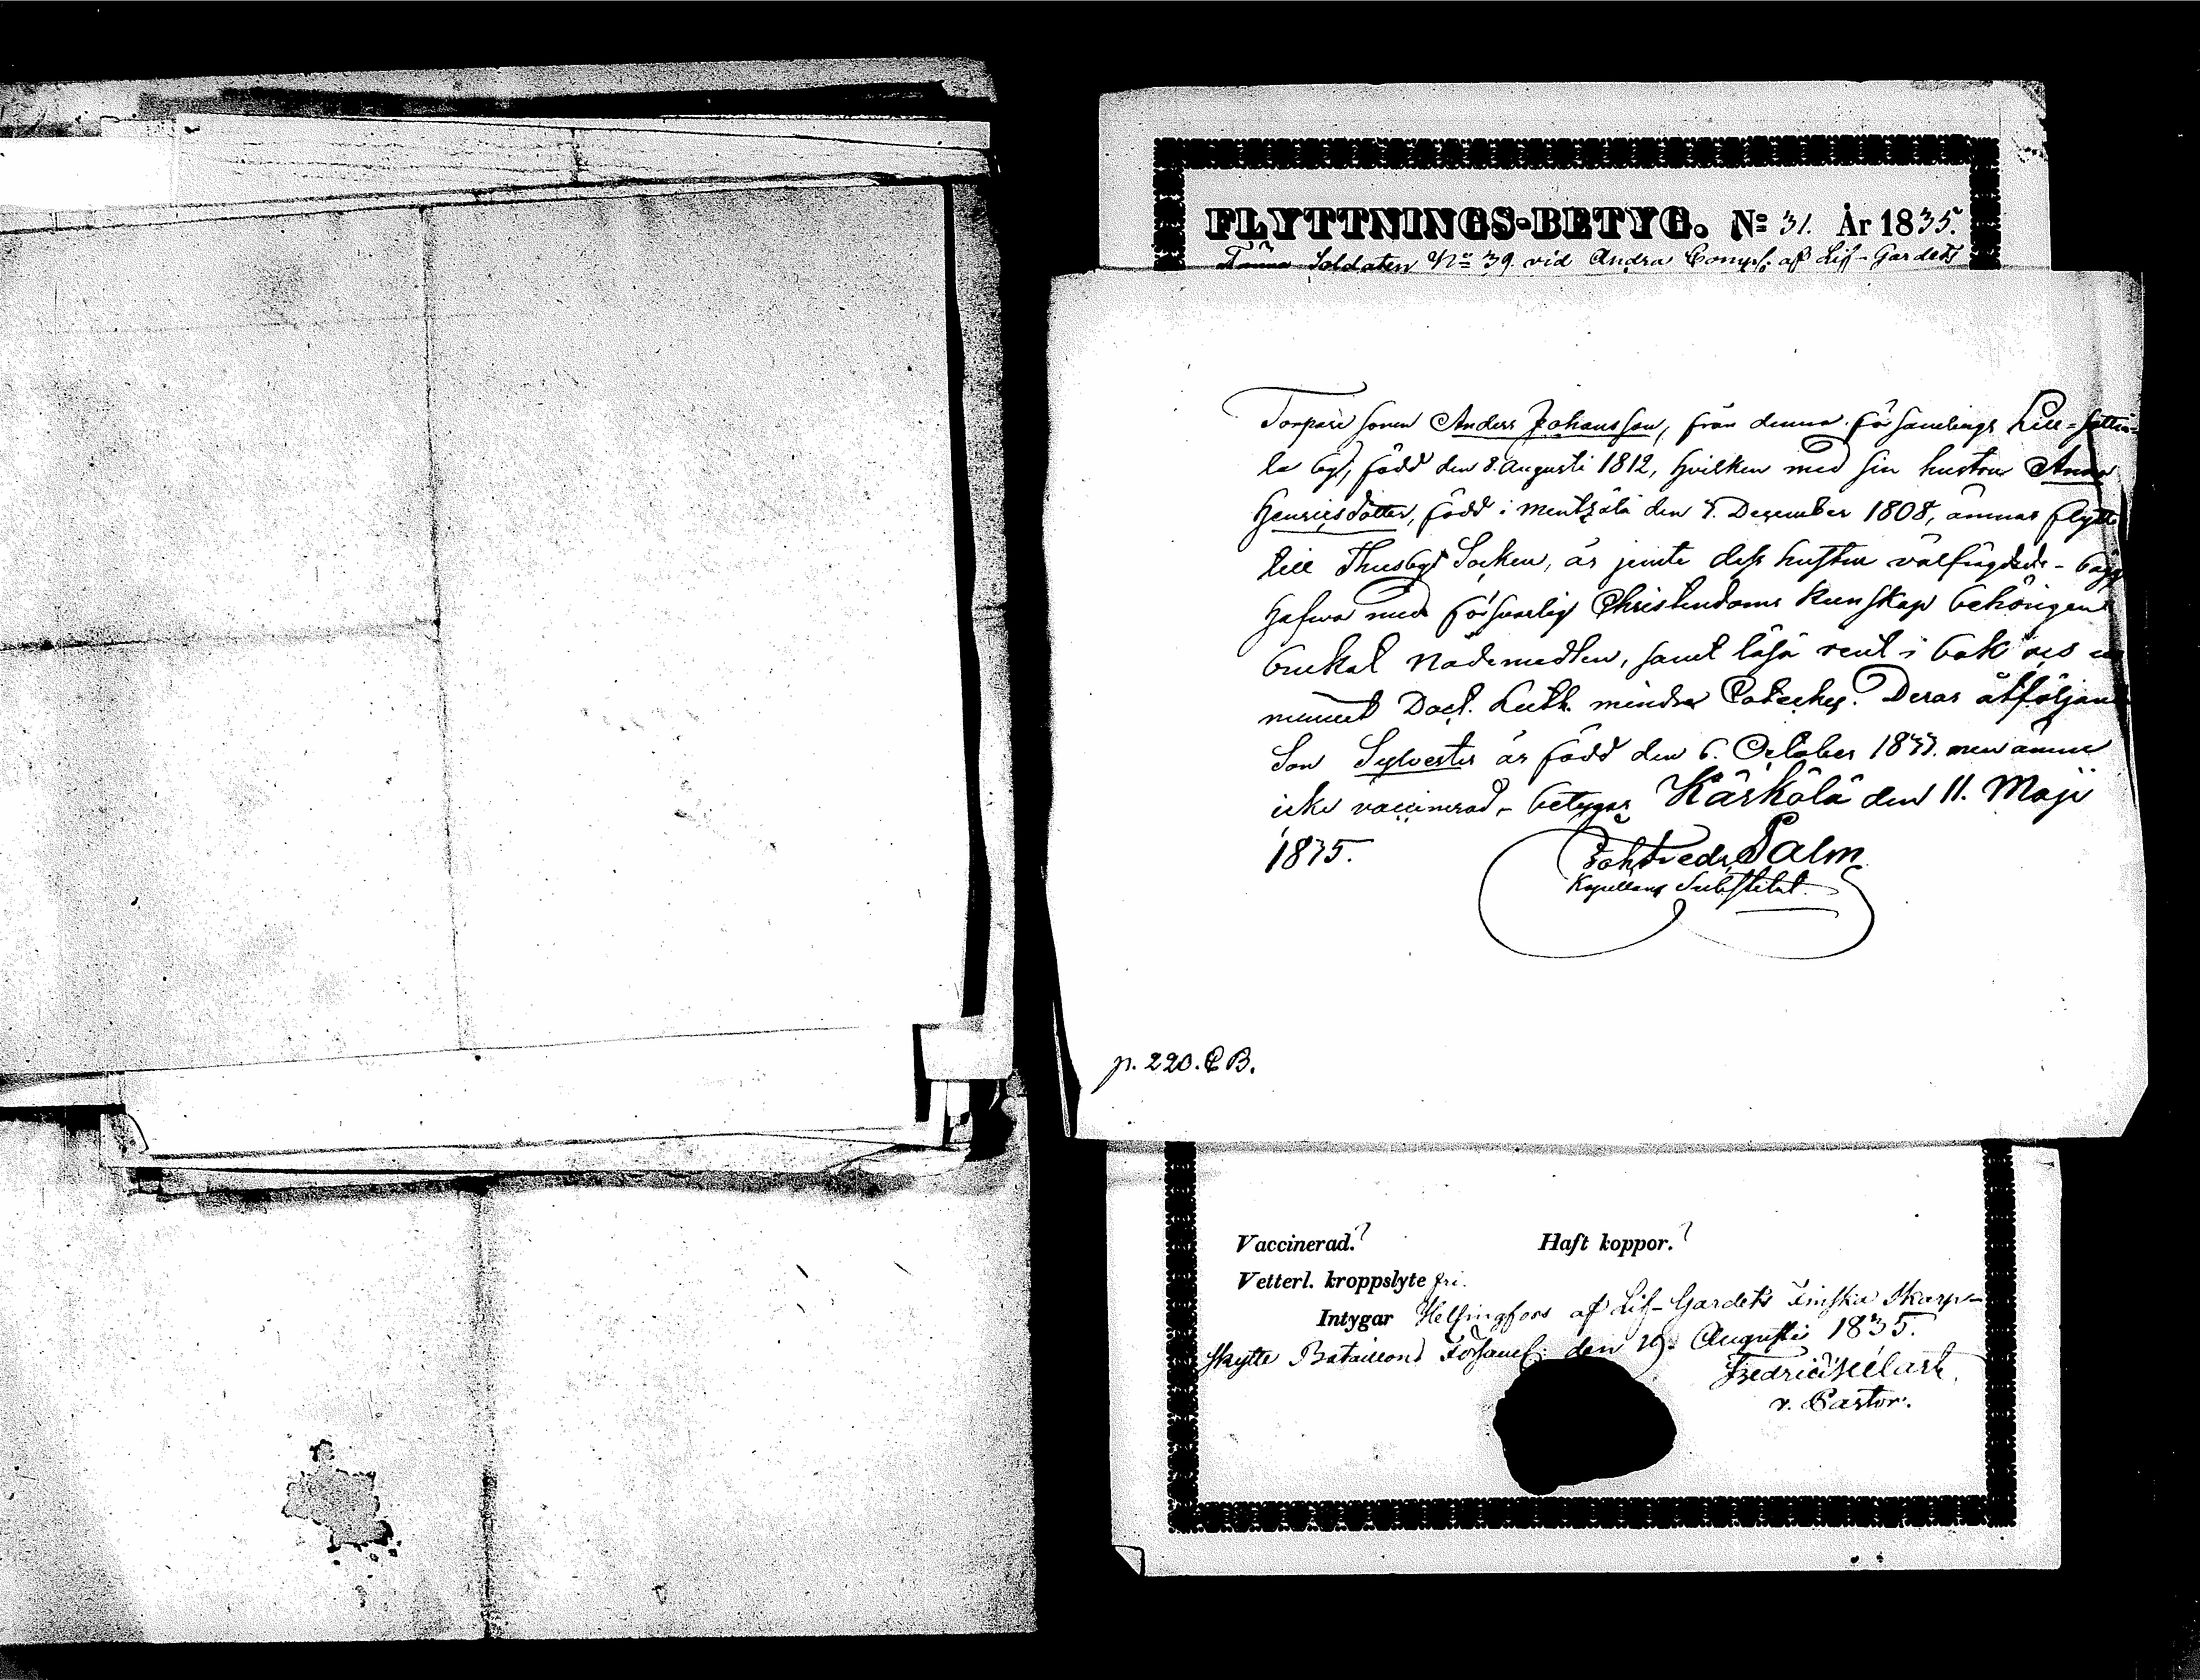 FLYTTNINGS-BETYG. No 31. År 1835.
Förra Soldaten No 39. vid Andra Comp. af Lif-Gardets
Torpare sonen Anders Johansson, från denna församlings Lill-
la by, född den 8. Augusti 1812, hvilken med sin hustru Anna
Henricsdotter, född i Mentzälä den 7. December 1808, ämnar flytta
till Thusby Socken, är jemte dess hustru välfrägdade -
hafva med försvarlig Christendoms kunskap behörigen
brukat Nådemedlen, samt läsa rent i bok
Doct. Luth. mindre Cateches. Deras åtföljande
Son Sylvester är född den 6. October 1833. men ännu
icke vaccinerad, - betygar Kärkölä den 11. Maji
1835.
Joh Fredr Palm
Kapellans Substitut.
p. 220. C B.
Vaccinerad. ?
Haft koppor. ?
Vetterl. kroppslyte fri.
Intygar Helsingfors af Lif-Gardets Finska Skarp-
skytte Bataillons Församl: den 19. Augusti 1835.
Fredric
v. Pastor.